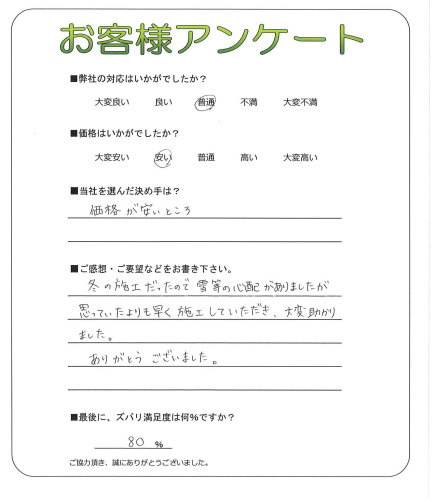 お客様アンケート
■弊社の対応はいかがでしたか？
大変良い 良い 普通 不満 大変不満
■価格はいかがでしたか？
大変安い 安い 普通 高い 大変高い
■当社を選んだ決め手は？
価格が安いところ
■ご感想・ご要望などをお書き下さい。
冬の施工だったので雪等の心配がありましたが
思っていたよりも早く施工していただき、大変助かり
ました。
ありがとうございました。
■最後に、ズバリ満足度は何％ですか？
80 ％
ご協力頂き、誠にありがとうございました。